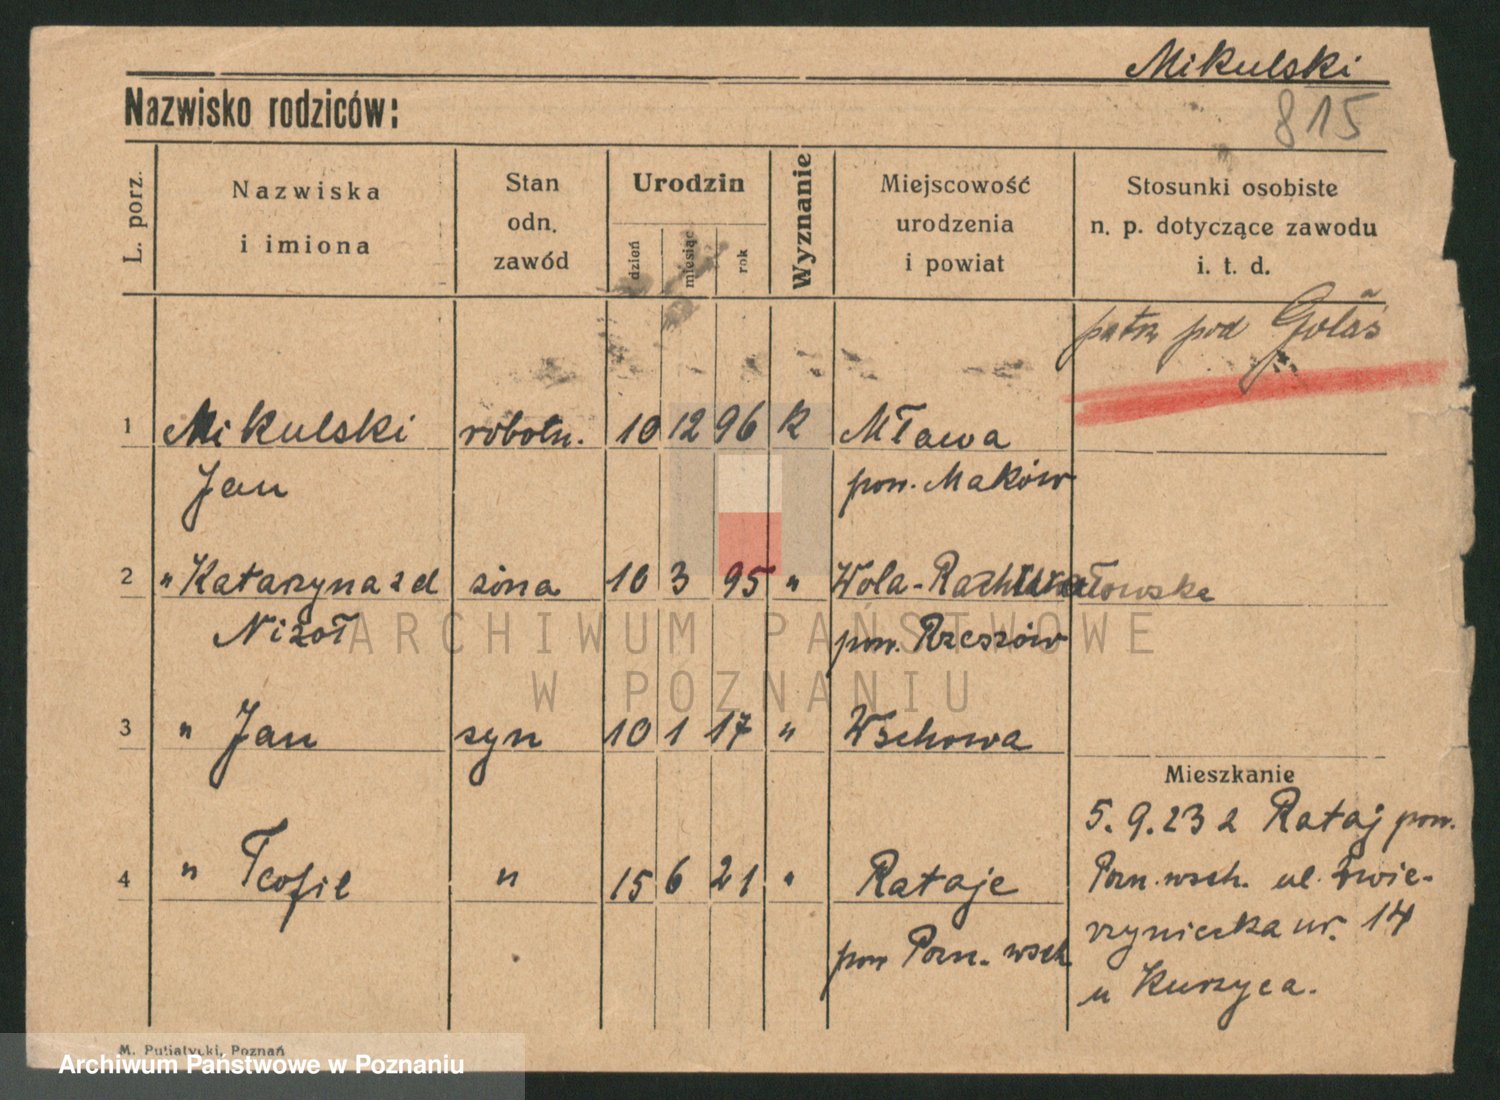 Mikulski
Nazwisko rodziców:
815
L. porz.
Nazwiska
i imiona
Stan
odn.
zawód
Urodzin
dzień
miesiąc
rok
Wyznanie
Miejscowość
urodzenia
i powiat
Stosunki osobiste
n. p. dotyczące zawodu
i. t. d.
patrz pod Golaś
1 Mikulski robotn. 10 12 96 k Mława
Jan pow. Maków
2 " Katarzyna z d żona 10 3 95 " Wola-
Nizoł pow. Rzeszów
3 " Jan syn 10 1 17 " Wschowa
Mieszkanie
5.9.23 z Rataj pow.
4 " Teofil " 15 6 21 " Rataje
Pozn. wsch. ul. Zwie-
rzyniecka nr. 14
pow Pozn. wsch
u Kurzyca.
M. Putiatycki, Poznań
ARCHIWUM PAŃSTWOWE
W POZNANIU
Archiwum Państwowe w Poznaniu